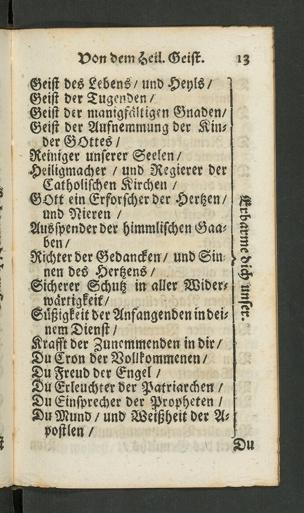 Von dem Heil. Geist. 13
Geist des Lebens / und Heyls /
Geist der Tugenden /
Geist der manigfältigen Gnaden /
Geist der Aufnemmung der Kin-
der GOttes /
Reiniger unserer Seelen /
Heiligmacher / und Regierer der
Catholischen Kirchen /
GOtt ein Erforscher der Hertzen /
und Nieren /
Ausspender der himmlischen Gaa-
ben /
Richter der Gedancken / und Sin
nen des Hertzens /
Sicherer Schutz in aller Wider-
wärtigkeit /
Süßigkeit der Anfangenden in dei-
nem Dienst /
Krafft der Zunemmenden in dir /
Du Cron der Vollkommenen /
Du Freud der Engel /
Du Erleuchter der Patriarchen /
Du Einsprecher der Propheten /
Du Mund / und Weißheit der A-
postlen /
Erbarme dich unser.
Du